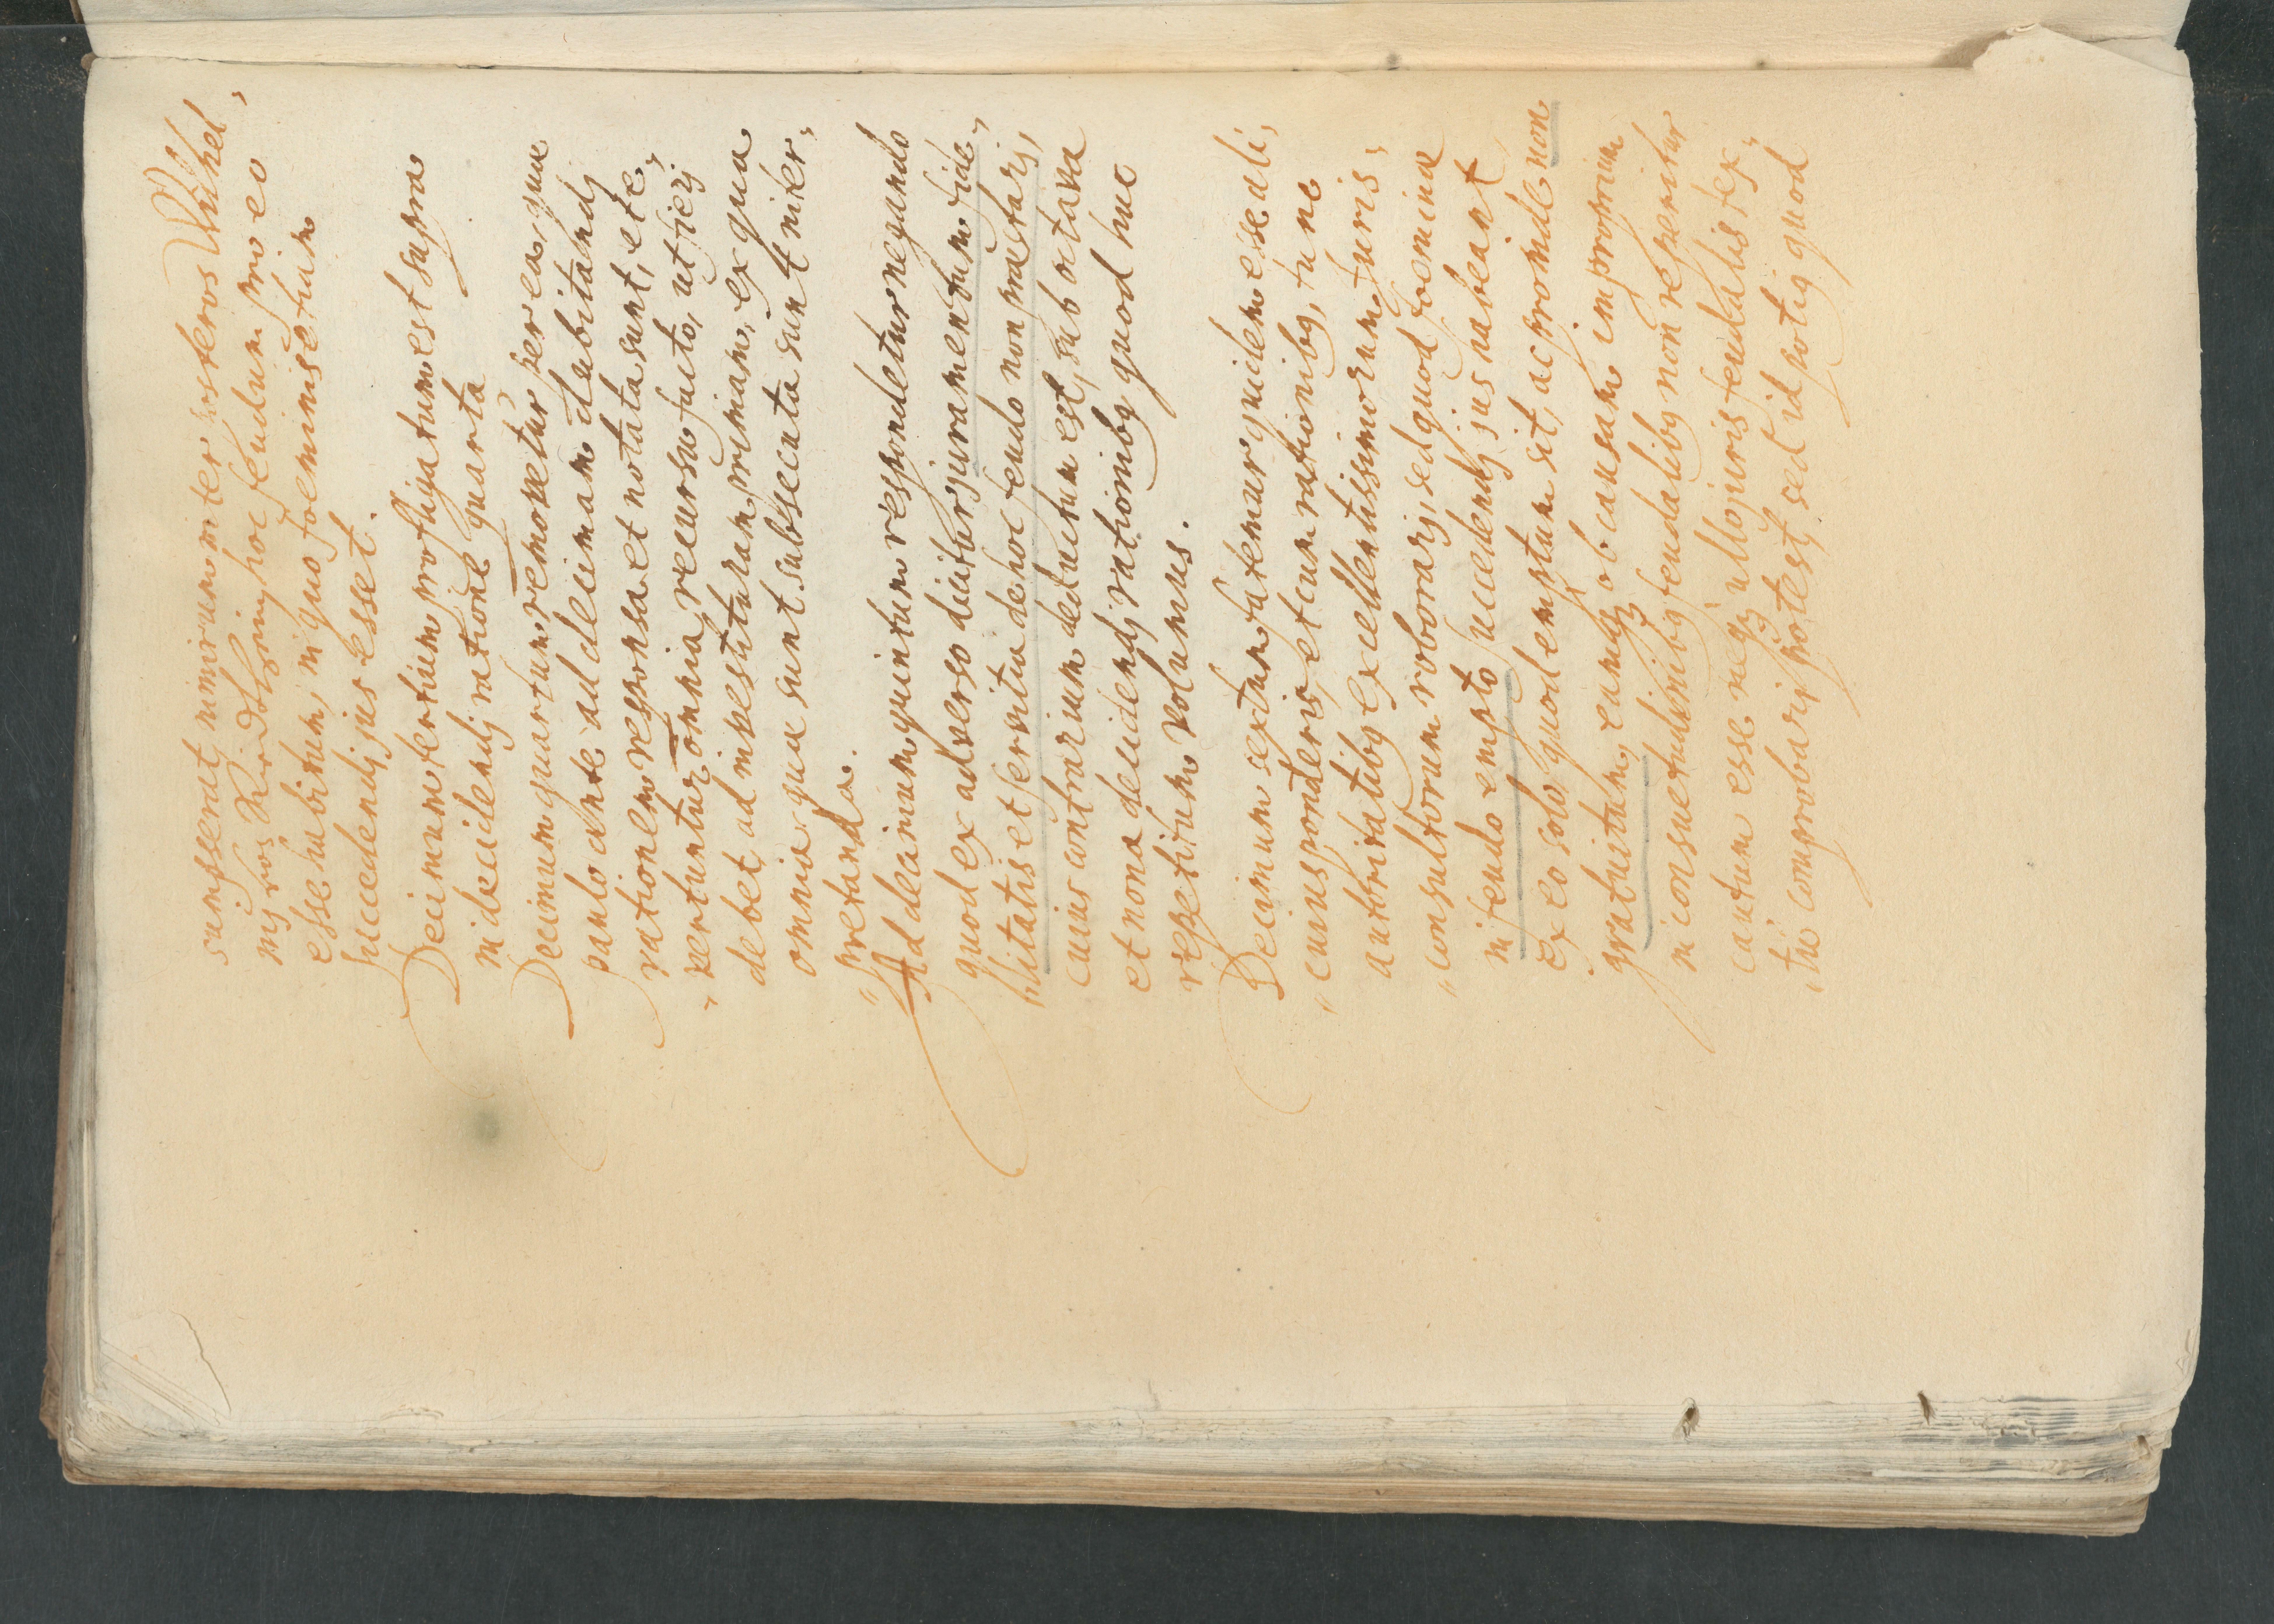 sumpserat, nimirum inter posteros Wilhel,
mj vos hoc feudum pro eo
esse habitum, in quo foeminis etiam
succedendj jus esset.
Decimum tertium profligatum est supra
in decidendj ratione quarta
Decimum quartum removetur per ea, quae
paulo ante ad decimam dubitandj
rationem responsa et notata sunt, et e,
„ vertuntur omnia, recursu facto, ut fierj
debet, ad investituram primam, ex qua
omnia quae sunt subsecuta sunt inter,
„ pretanda.
Ad decimum quintum respondetur negando
quod ex adverso dicitur, juramentum fide,
litatis et servitia de hoc feudo non praestarj,
cuius contrarium deductum est, sub octava
et nona decidendj rationibq quod huc
repetitum volumus.
Decimum sextum fatemur quidem esse ali,
„ cuius ponderis, et cum rationibq, tunc
autoritatibq excellentissimorum Juris,
„ consultorum roborarj, sed quod foeminae
in feudo empto succedendj jus habeant
ex eo solo quod emptum sit, ac proinde non
gratuitum, eamq ob causam improprium
in consuetudinibq feudalibq non reperitur
cautum esse neq ullo juris feudalis tex,
„ tu comprobarj potest, sed id potiq quod